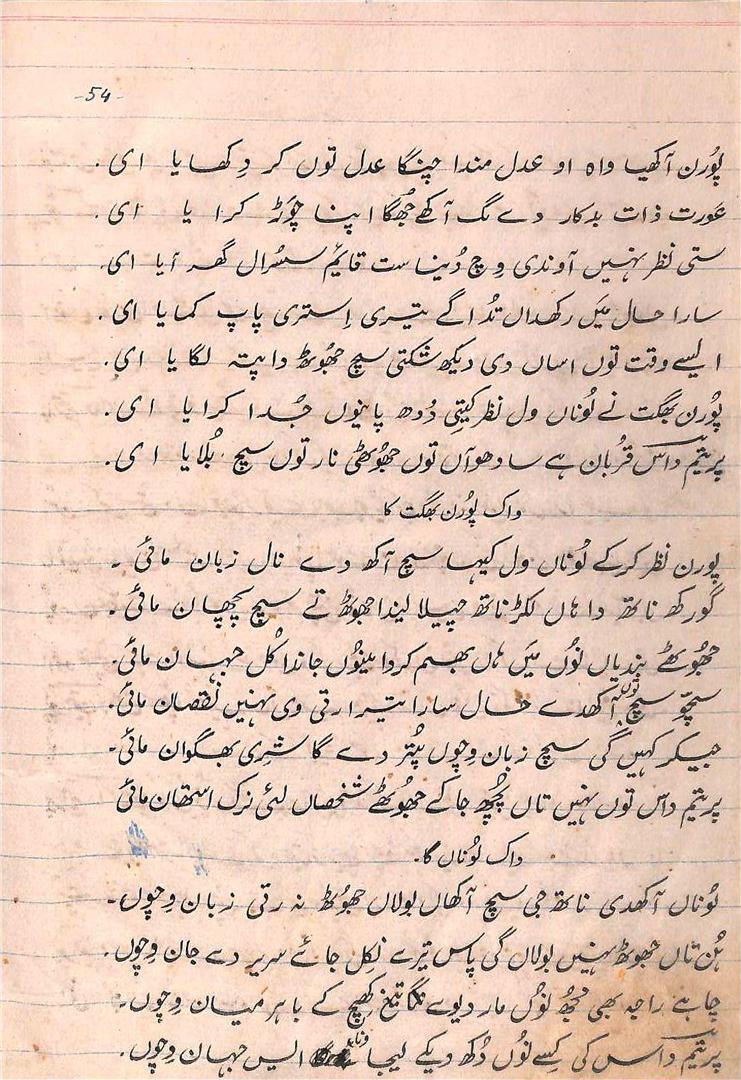 -54-
پُورن آکھیا واہ او عدل مندا چنگا عدل توں کر دِکھایا ای ۔
عَورت ذات بدکار دے لگ آکھے جھُگا اپنا چَوڑ کرا یا ای ۔
ستی نظر نہیں آوندی وچ دُنیا ست قایٔم سسُرال گھر آیا ای
سارا حال مَیں رکھداں تُد اگے تیری اِستری پاپ کمایا ای ۔
ایسے وقت توں اساں دی دیکھ شکتی سچ جھُوٹھ دا پتہ لگایا ای ۔
پُورن بھگت نے لُوناں ول نظر کیتی دُودھ پانیوں جُدا کرایا ای ۔
پریتم داس قُربان ہے سادھوآں توں جھُوٹھی نار توں سچ بُلایا ای ۔
واک پُورن بھگت کا
پُورن نظر کرکے لُوناں ول کیہا سچ آکھ دے نال زبان مائی ۔
گورکھ ناتھ دا ہاں لکڑ ناتھ چیلا لیندا جھوٹھ تے سچ پچھان مائی ۔
جھُوٹھے بندیاں نُوں مَیں ہاں بھسم کردا مینُوں جاندا کُل جہان مائی ۔
سچّو سچ توں آکھدے حال سارا تیرا رتی وی نہیں نُقصان مائی ۔
جیکر کہیں گی سچ زبان وِچوں پُتر دے گا شری بھگوان مائی ۔
پریتم داس توں نہیں تاں پُچھ جا کے جھُوٹھے شخصاں لئی نرک استھان مائی
واک لُوناں کا ۔
لُوناں آکھدی ناتھ جی سچ آکھاں بولاں جھُوٹھ نہ رتی زبان وِچوں ۔
ہُن تاں جھوٹھ نہیں بولاں گی پاس تیرے نکِل جائے سریر دے جان وِچوں ۔
چاہے راجہ بھی مُجھ نُوں مار دیوے تیغ کھِچ کے باہر میان وِچوں ۔
پریتم داس کی کِسے نُوں دُکھ دیکے لیجا ونا ایس جہان وِچوں ۔